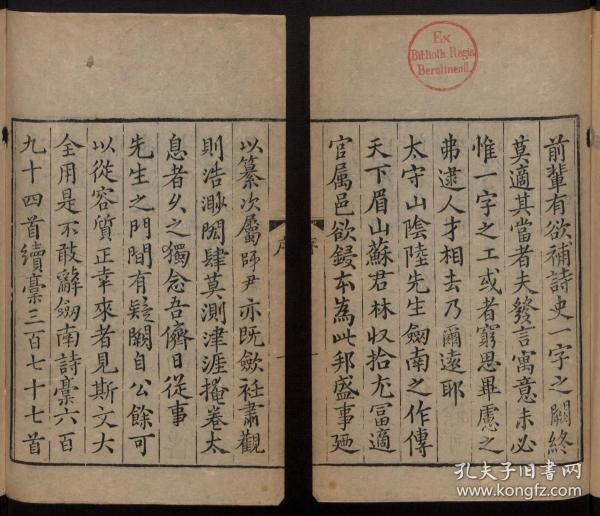 前輩有欲補詩史一字之闕終
莫適其當者夫發言寓意未必
惟一字之工或者窮思畢慮之
弗逮人才相去乃爾遠耶
太守山陰陸先生劔南之作傳
天下眉山蘇君林収拾尢富適
官屬邑欲鋟本為此邦盛事廼
序
一
以纂次屬師尹亦既歛衽肅觀
則浩渺閎肆莫測津涯掩卷太
息者久之獨念吾儕日從事
先生之門間有疑闕自公餘可
以從容質正幸來者見斯文大
全用是不敢辭劔南詩藁六百
九十四首續藁三百七十七首
Ex
Biblioth. Regia
Berolinenſi.
孔夫子旧书网
www.kongfz.com